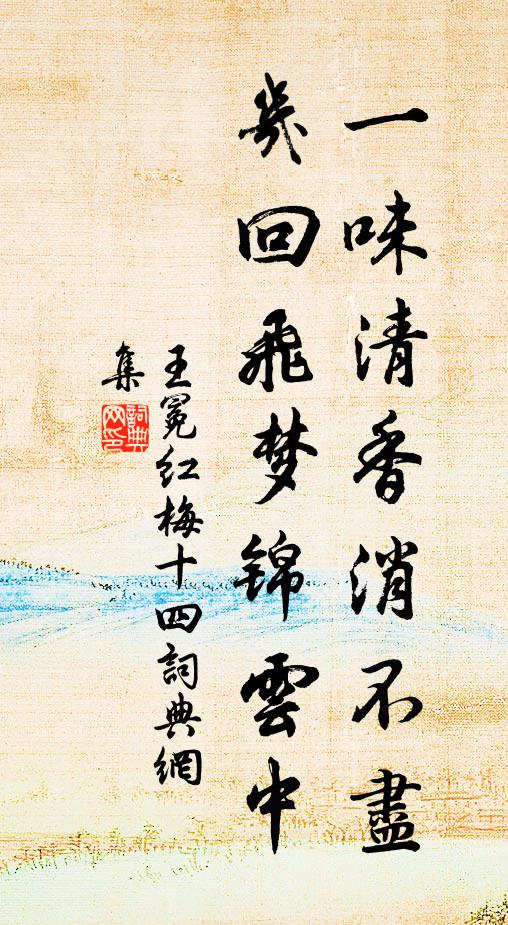 一味清香消不盡
幾回飛梦錦雲中
王冕红梅十四詞典網
集
詞典
网印